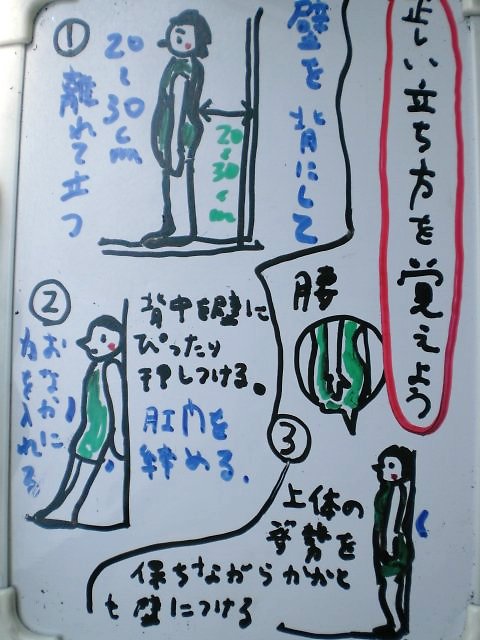 正しい立ち方を覚えよう
壁を背にして
①
20〜30cm
離れて立つ
20〜30cm
②
背中を壁に
ぴったり
押しつける。
肛門を
締める。
おなかに
力を入れる。
腰
③
上体の
姿勢を
保ちながらかかと
も壁につける